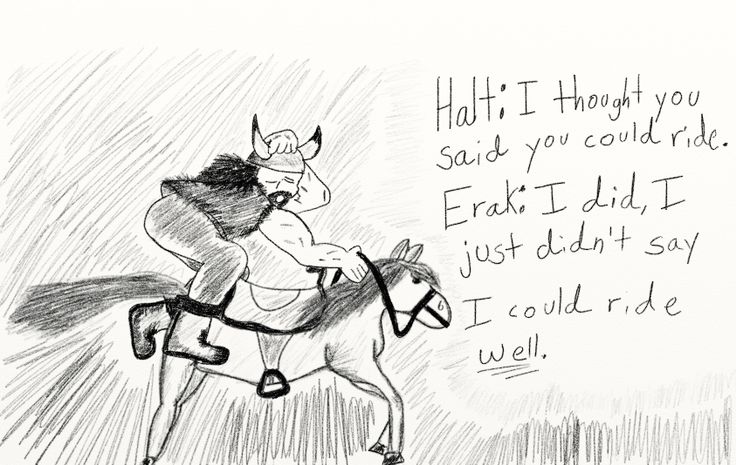 Halt: I thought you
said you could ride.
Erak: I did, I
just didn't say
I could ride
well.